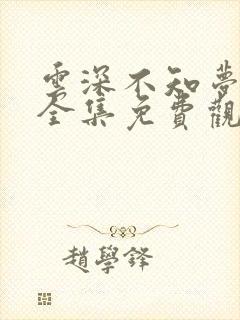 雲深不知夢
全集免費觀
趙學鋒